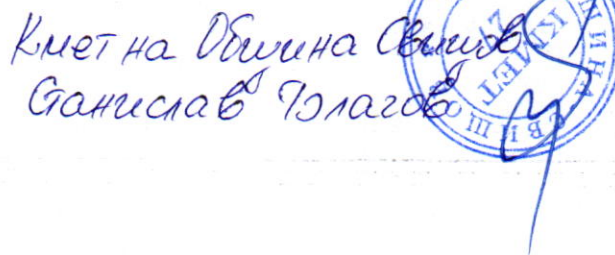 Кмет на Община Свищов
Станислав Благов
КМЕТ
ИНА СВИЩО